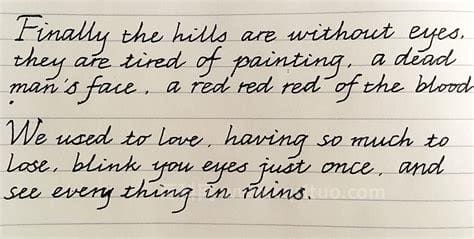 Finally the hills are without eyes.
they are tired of painting, a dead
man's face. a red red red of the blood
.
We used to love. having so much to
lose. blink you eyes just once. and
see every thing in ruins.